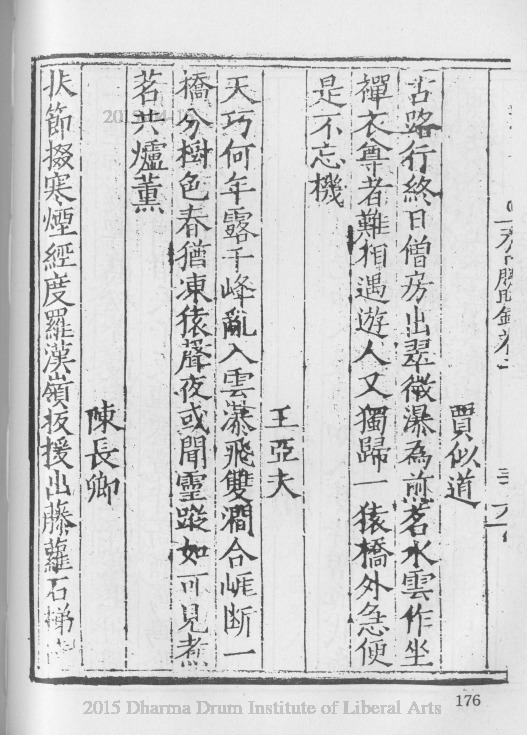 賈似道
古路行終日僧房出翠微瀑為煎茗水雲作坐
禪衣尊者難相遇遊人又獨歸一猿橋外急便
是不忘機
王亞夫
天巧何年露千峰亂入雲瀑飛雙澗合崕断一
橋分樹色春猶凍猿聲夜或聞靈蹤如可見煮
茗共爐薰
陳長卿
扶節掇寒煙經度羅漢嶺扳援出藤蘿石梯
176
2015 Dharma Drum Institute of Liberal Arts